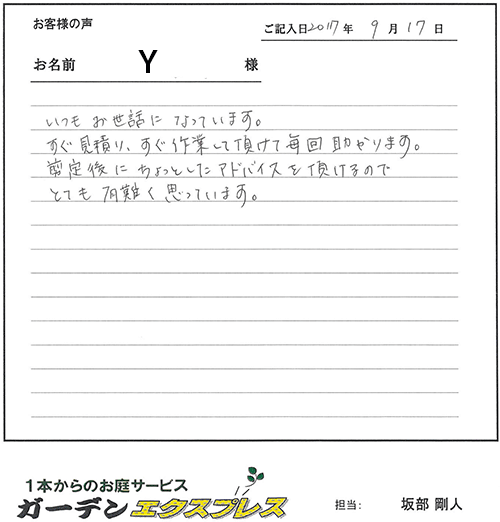 お客様の声
ご記入日 2017年 9月 17日
お名前 Y 様
いつも お世話に なっています。
すぐ見積り、すぐ作業して頂けて毎回 助かります。
剪定後に ちょっとした アドバイスを 頂けるので
とても 有難く 思っています。
1本からのお庭サービス
ガーデンエクスプレス
担当: 坂部 剛人